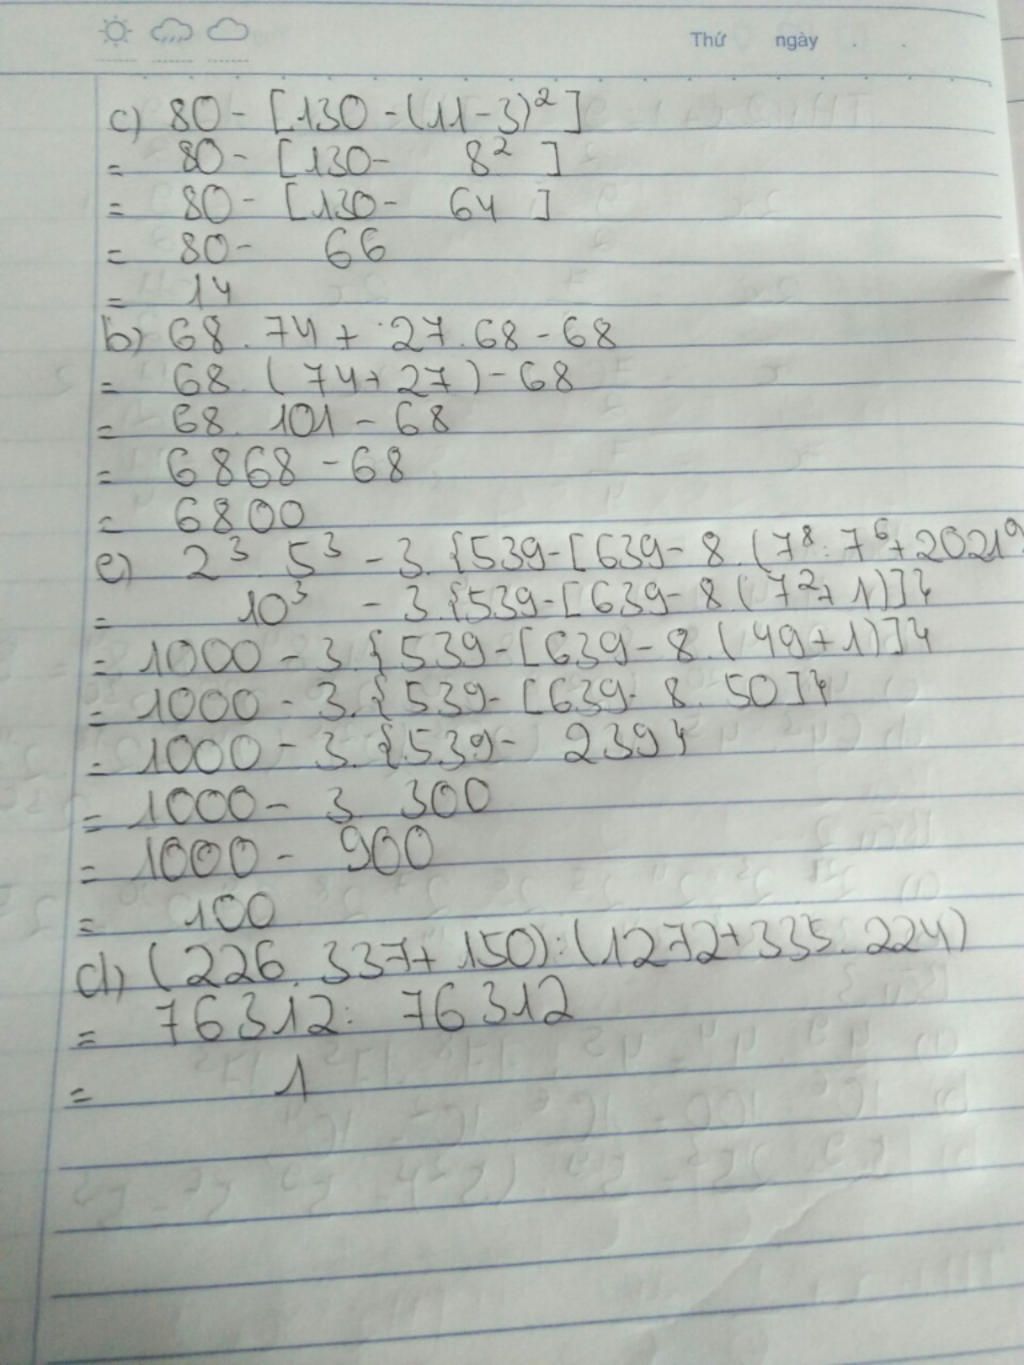 Thứ ngày
c) 80 - [130 - (11 - 3)²]
= 80 - [130 - 8²]
= 80 - [130 - 64]
= 80 - 66
= 14
b) 68 . 74 + 27 . 68 - 68
= 68 . (74 + 27) - 68
= 68 . 101 - 68
= 6868 - 68
= 6800
e) 2³ . 5³ - 3 . {539 - [639 - 8 . (7⁸ : 7⁶ + 2021⁰
= 10³ - 3 . {539 - [639 - 8 (7² + 1)]}
= 1000 - 3 . {539 - [639 - 8 . (49 + 1)]}
= 1000 - 3 . {539 - [639 - 8 . 50]}
= 1000 - 3 . {539 - 239}
= 1000 - 3 300
= 1000 - 900
= 100
d) (226 . 337 + 150) : (1272 + 335 . 224)
= 76312 : 76312
= 1